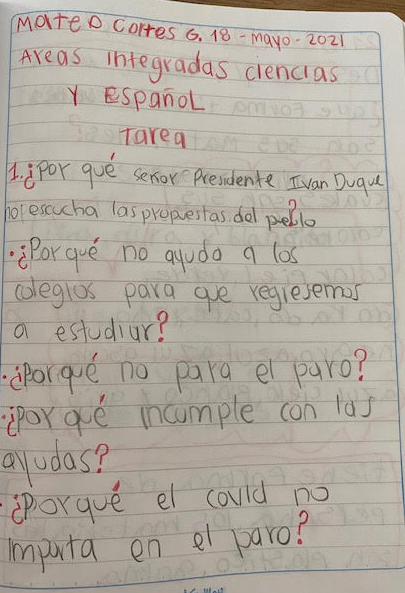 Mateo Cortes G. 18 - mayo - 2021
Areas integradas ciencias
Y Español
Tarea
1. ¿Por qué señor Presidente Ivan Duque
no escucha las propuestas del pueblo?
• ¿Por qué no ayuda a los
colegios para que regresemos
a estudiar?
• ¿Por qué no para el paro?
• ¿Por qué incumple con las
ayudas?
• ¿Por qué el covid no
importa en el paro?